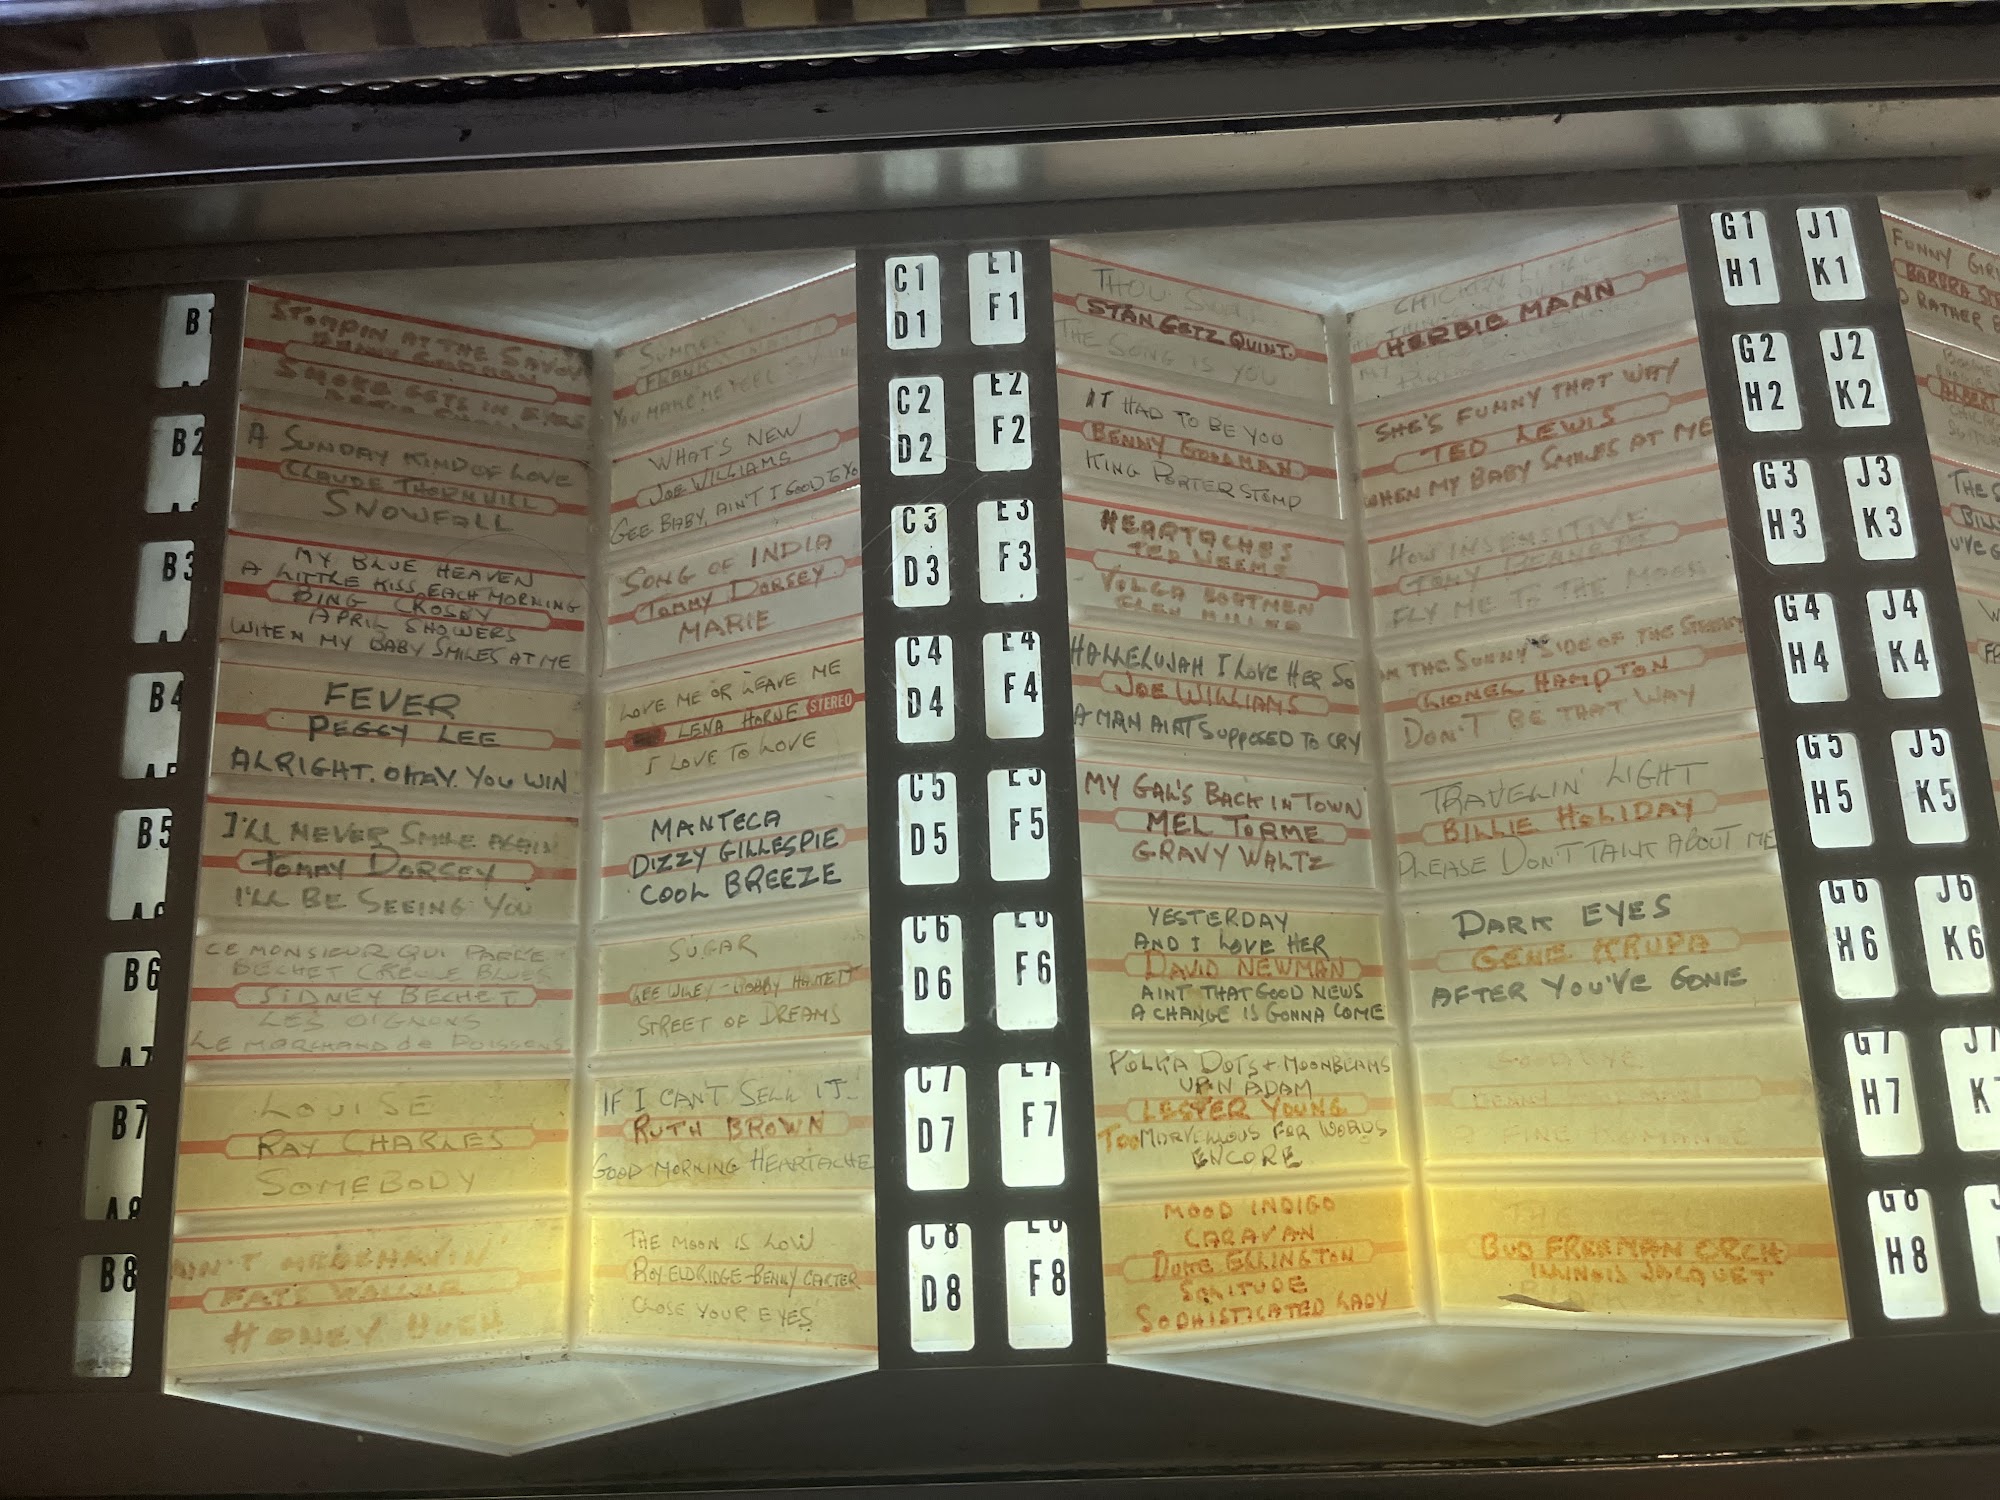 B1
STOMPIN AT THE SAVOY
BENNY GOODMAN
SMOKE GETS IN EYES
B2
A SUNDAY KIND OF LOVE
CLAUDE THORNHILL
SNOWFALL
B3
MY BLUE HEAVEN
A LITTLE KISS EACH MORNING
BING CROSBY
APRIL SHOWERS
WHEN MY BABY SMILES AT ME
B4
FEVER
PEGGY LEE
ALRIGHT. OKAY. YOU WIN
B5
I'LL NEVER SMILE AGAIN
TOMMY DORSEY
I'LL BE SEEING YOU
B6
CE MONSIEUR QUI PARLE
BECHET CREOLE BLUES
SIDNEY BECHET
LES OIGNONS
LE MARCHAND de POISSONS
A7
B7
LOUISE
RAY CHARLES
SOMEBODY
A8
B8
AIN'T MISBEHAVIN'
FATS WALLER
HONEY HUSH
FRANK SINATRA
YOU MAKE ME FEEL SO YOUNG
WHAT'S NEW
JOE WILLIAMS
GEE BABY, AIN'T I GOOD TO YO
SONG OF INDIA
TOMMY DORSEY
MARIE
LOVE ME OR LEAVE ME
LENA HORNE STEREO
I LOVE TO LOVE
MANTECA
DIZZY GILLESPIE
COOL BREEZE
SUGAR
LEE WILEY-BOBBY HACKETT
STREET OF DREAMS
IF I CAN'T SELL IT
RUTH BROWN
GOOD MORNING HEARTACHE
THE MOON IS LOW
ROY ELDRIDGE-BENNY CARTER
CLOSE YOUR EYES
C1 E1
D1 F1
C2 E2
D2 F2
C3 E3
D3 F3
C4 E4
D4 F4
C5 E5
D5 F5
C6 E6
D6 F6
C7 E7
D7 F7
C8 E8
D8 F8
THOU
STAN GETZ QUINT.
THE SONG IS YOU
IT HAD TO BE YOU
BENNY GOODMAN
KING PORTER STOMP
HEARTACHES
TED WEEMS
VOLGA BOATMEN
GLEN MILLER
HALLELUJAH I LOVE HER SO
JOE WILLIAMS
A MAN AINT SUPPOSED TO CRY
MY GAL'S BACK IN TOWN
MEL TORME
GRAVY WALTZ
YESTERDAY
AND I LOVE HER
DAVID NEWMAN
AINT THAT GOOD NEWS
A CHANGE IS GONNA COME
POLKA DOTS + MOONBEAMS
UP'N ADAM
LESTER YOUNG
TOO MARVELOUS FOR WORDS
ENCORE
MOOD INDIGO
CARAVAN
DUKE ELLINGTON
SOLITUDE
SOPHISTICATED LADY
HERBIE MANN
SHE'S FUNNY THAT WAY
TED LEWIS
WHEN MY BABY SMILES AT ME
HOW INSENSITIVE
TONY
FLY ME TO THE MOON
ON THE SUNNY SIDE OF THE STREET
LIONEL HAMPTON
DON'T BE THAT WAY
TRAVELIN' LIGHT
BILLIE HOLIDAY
PLEASE DON'T TALK ABOUT ME
DARK EYES
GENE KRUPA
AFTER YOU'VE GONE
A FINE ROMANCE
THE
BUD FREEMAN ORCH
ILLINOIS JACQUET
G1 J1
H1 K1
G2 J2
H2 K2
G3 J3
H3 K3
G4 J4
H4 K4
G5 J5
H5 K5
G6 J6
H6 K6
G7 J7
H7 K
G8 J
H8
FUNNY GIRL
BARBRA ST
RATHER
ALBERT
THE